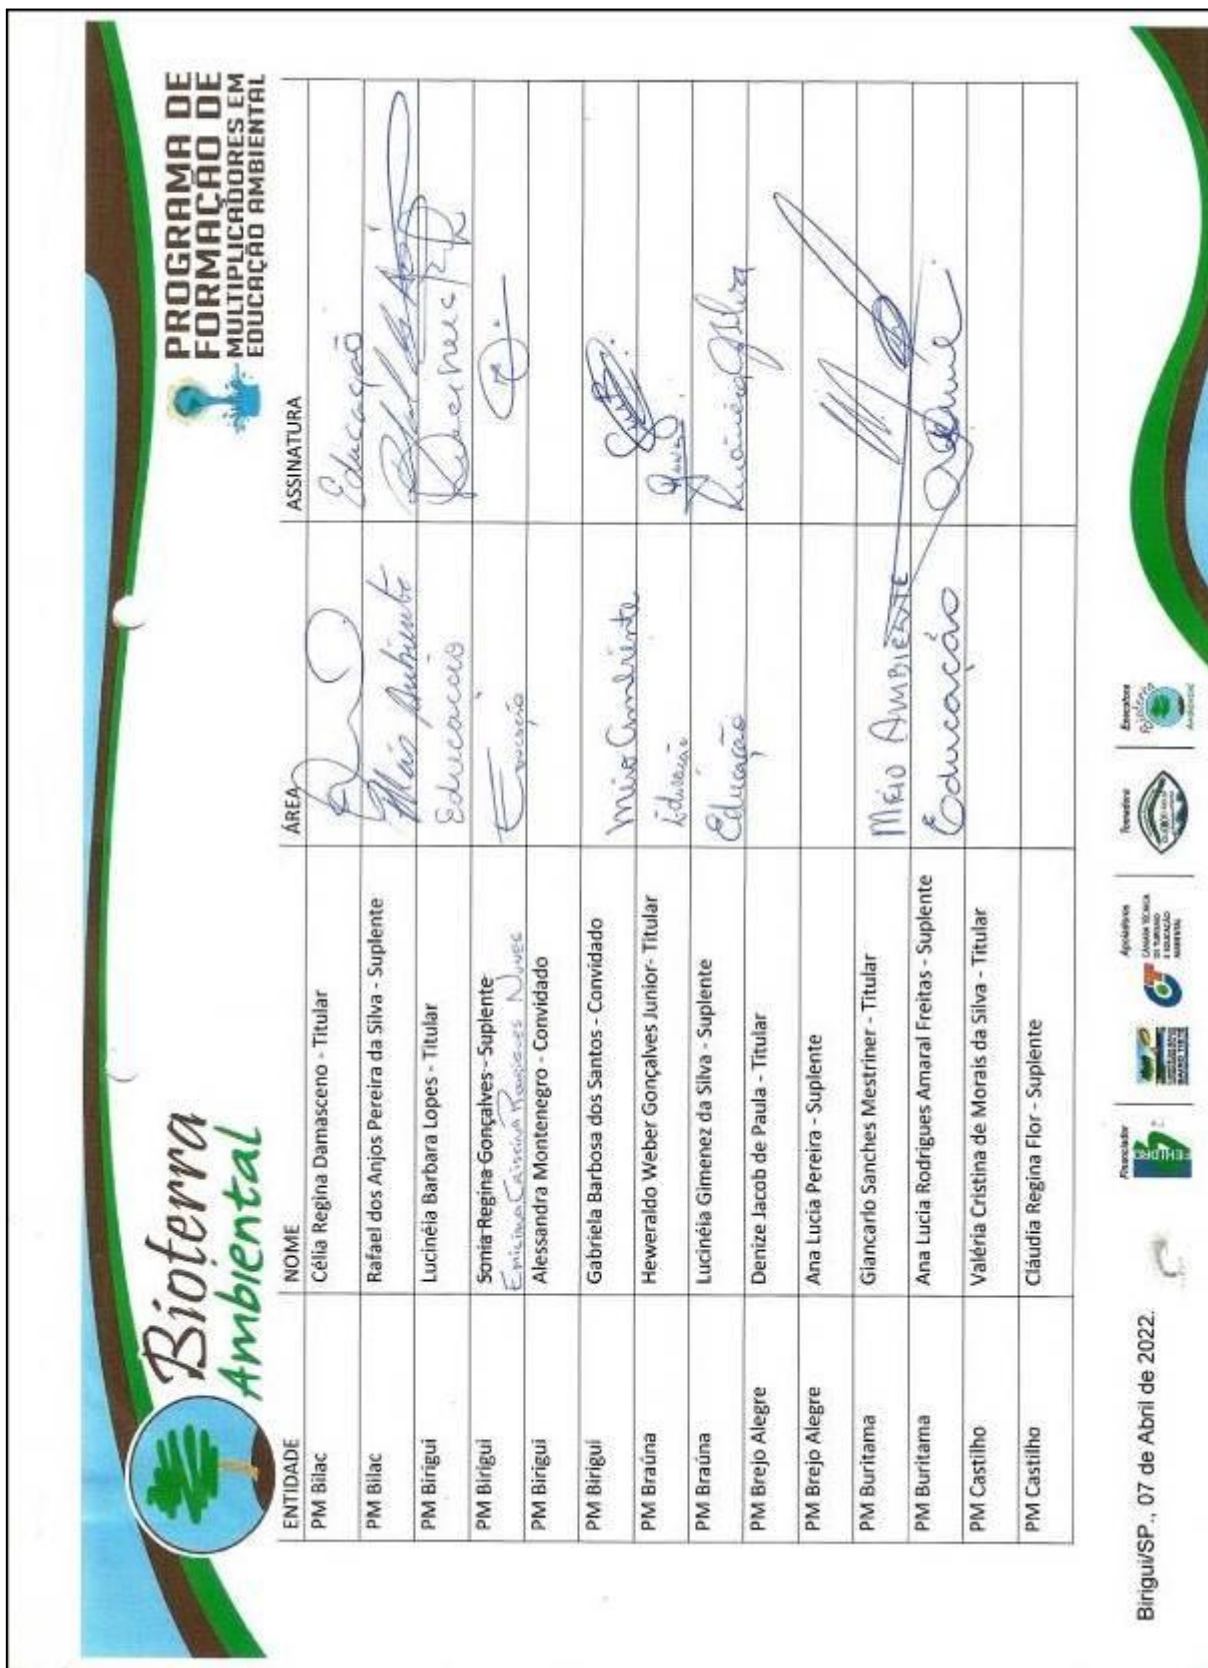 Bioterra
Ambiental
PROGRAMA DE
FORMAÇÃO DE
MULTIPLICADORES EM
EDUCAÇÃO AMBIENTAL
ENTIDADE NOME ÁREA ASSINATURA
PM Bilac Célia Regina Damasceno - Titular Educação
PM Bilac Rafael dos Anjos Pereira da Silva - Suplente Meio Ambiente
PM Birigui Lucinéia Barbara Lopes - Titular Educação
PM Birigui Sonia Regina Gonçalves - Suplente Educação
Rodrigues Nunes
PM Birigui Alessandra Montenegro - Convidado
PM Birigui Gabriela Barbosa dos Santos - Convidado Meio Ambiente
PM Braúna Heweraldo Weber Gonçalves Junior- Titular Educação
PM Braúna Lucinéia Gimenez da Silva - Suplente Educação
PM Brejo Alegre Denize Jacob de Paula - Titular
PM Brejo Alegre Ana Lucia Pereira - Suplente
PM Buritama Giancarlo Sanches Mestriner - Titular MEIO AMBIENTE
PM Buritama Ana Lucia Rodrigues Amaral Freitas - Suplente Educação
PM Castilho Valéria Cristina de Morais da Silva - Titular
PM Castilho Cláudia Regina Flor - Suplente
Birigui/SP., 07 de Abril de 2022.
Financiador
FEHIDRO
BAIXO TIETÊ
Apoiadores
CÂMARA TÉCNICA
DE TURISMO
E EDUCAÇÃO
AMBIENTAL
Tomadora
Executora
Bioterra